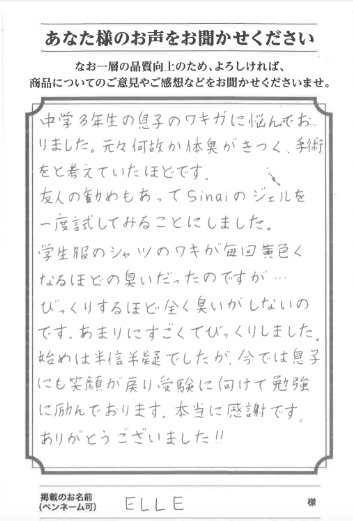 あなた様のお声をお聞かせください
なお一層の品質向上のため、よろしければ、
商品についてのご意見やご感想などをお聞かせくださいませ。
中学3年生の息子のワキガに悩んでお
りました。元々何故か体臭がきつく、手術
をと考えていたほどです。
友人の勧めもあってSinaiのジェルを
一度試してみることにしました。
学生服のシャツのワキが毎回黄色く
なるほどの臭いだったのですが…
びっくりするほど全く臭いがしないの
です。あまりにすごくてびっくりしました。
始めは半信半疑でしたが、今では息子
にも笑顔が戻り受験に向けて勉強
に励んでおります。本当に感謝です。
ありがとうございました!!
掲載のお名前
(ペンネーム可)
ELLE
様